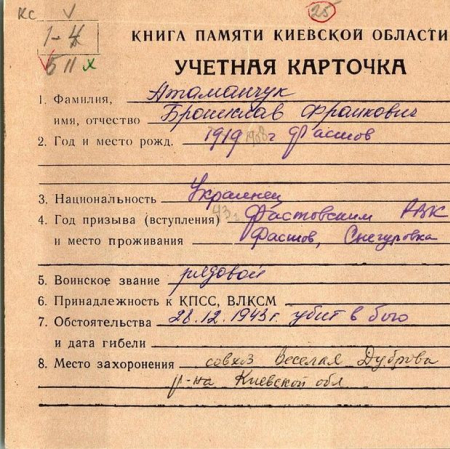 КС V 25
1-4
Б II х
КНИГА ПАМЯТИ КИЕВСКОЙ ОБЛАСТИ
УЧЕТНАЯ КАРТОЧКА
1. Фамилия, Атаманчук
имя, отчество Бронислав Франкович
2. Год и место рожд. 1919 1908 г Фастов
3. Национальность Украинец
4. Год призыва (вступления) 43г Фастовским РВК
и место проживания Фастов, Снегуровка
5. Воинское звание рядовой
6. Принадлежность к КПСС, ВЛКСМ
7. Обстоятельства 28.12.1943г. убит в бою
и дата гибели
8. Место захоронения совхоз Веселая Дуброва
р-на Киевской обл.